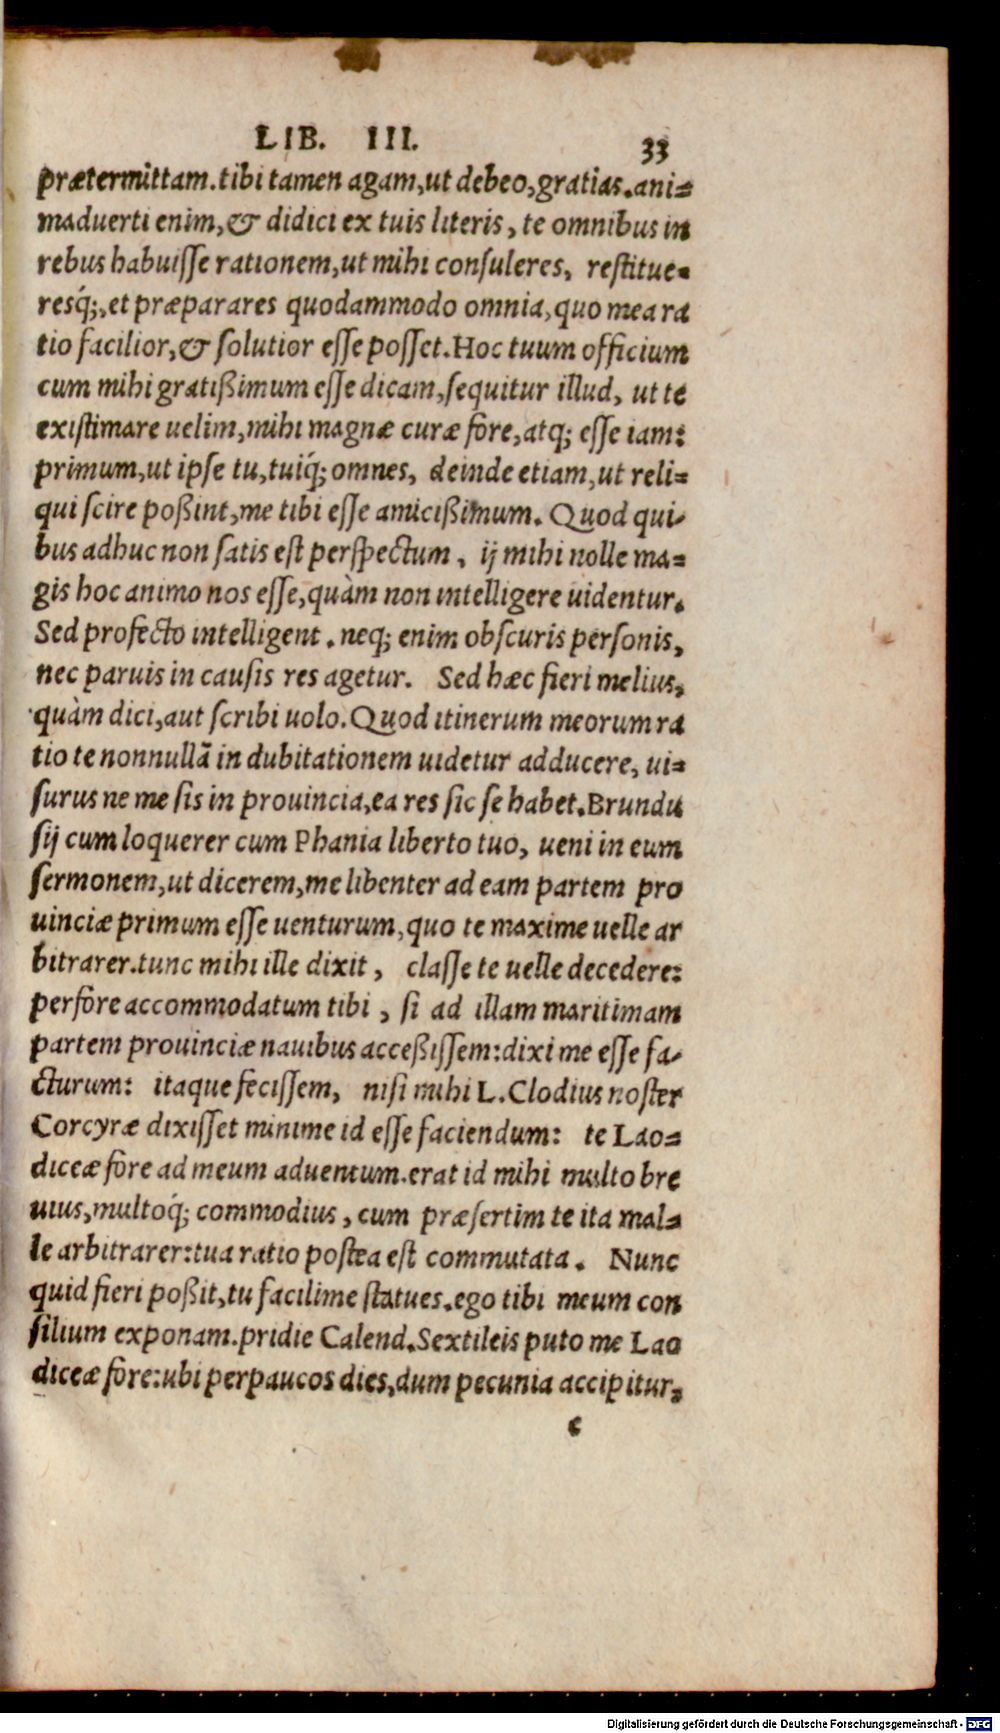 LIB. III. 33
prætermittam.tibi tamen agam,ut debeo,gratias.ani-
maduerti enim,& didici ex tuis literis, te omnibus in
rebus habuisse rationem,ut mihi consuleres, restitue-
resq́;,et præparares quodammodo omnia,quo mea ra
tio facilior,& solutior esse posset.Hoc tuum officium
cum mihi gratißimum esse dicam,sequitur illud, ut te
existimare uelim,mihi magnæ curæ fore,atq; esse iam:
primum,ut ipse tu,tuiq́; omnes, deinde etiam,ut reli-
qui scire poßint,me tibi esse amicißimum. Quod qui-
bus adhuc non satis est perspectum, ij mihi nolle ma-
gis hoc animo nos esse,quàm non intelligere uidentur.
Sed profecto intelligent. neq; enim obscuris personis,
nec paruis in causis res agetur. Sed hæc fieri melius,
quàm dici,aut scribi uolo.Quod itinerum meorum ra
tio te nonnullã in dubitationem uidetur adducere, ui-
surus ne me sis in prouincia,ea res sic se habet.Brundu
sij cum loquerer cum Phania liberto tuo, ueni in eum
sermonem,ut dicerem,me libenter ad eam partem pro
uinciæ primum esse uenturum,quo te maxime uelle ar
bitrarer.tunc mihi ille dixit, classe te uelle decedere:
perfore accommodatum tibi, si ad illam maritimam
partem prouinciæ nauibus acceßissem:dixi me esse fa-
cturum: itaque fecissem, nisi mihi L.Clodius noster
Corcyræ dixisset minime id esse faciendum: te Lao-
diceæ fore ad meum aduentum.erat id mihi multo bre
uius,multoq́; commodius, cum præsertim te ita mal-
le arbitrarer:tua ratio postea est commutata. Nunc
quid fieri poßit,tu facilime statues.ego tibi meum con
silium exponam.pridie Calend.Sextileis puto me Lao
diceæ fore:ubi perpaucos dies,dum pecunia accipitur,
c
Digitalisierung gefördert durch die Deutsche Forschungsgemeinschaft - DFG